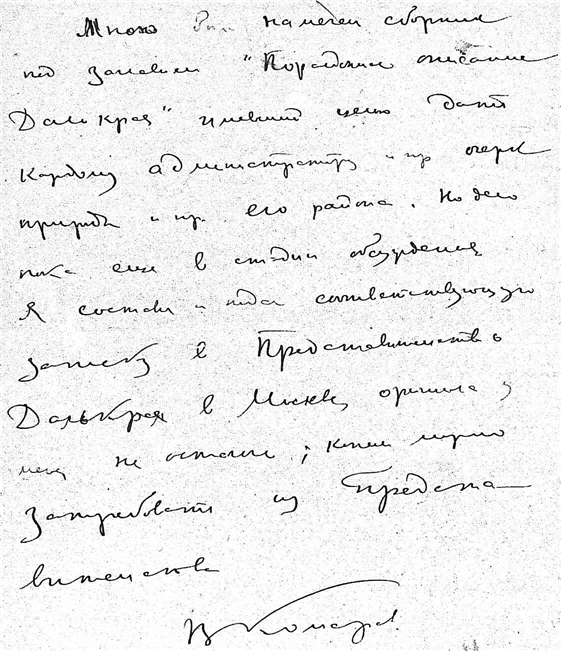 Мною намечен сборник
под заглавием "Порайонное описание
Далькрая" имевший целью дать
каждому администратору и пр очерк
природы и пр. его района. Но дело
пока еще в стадии обсуждения
Я составил и подал соответствующую
записку в Представительство
ДальКрая в Москве, оригинала у
меня не осталось; копию можно
затребовать из Предста-
вительства
В Комаров.